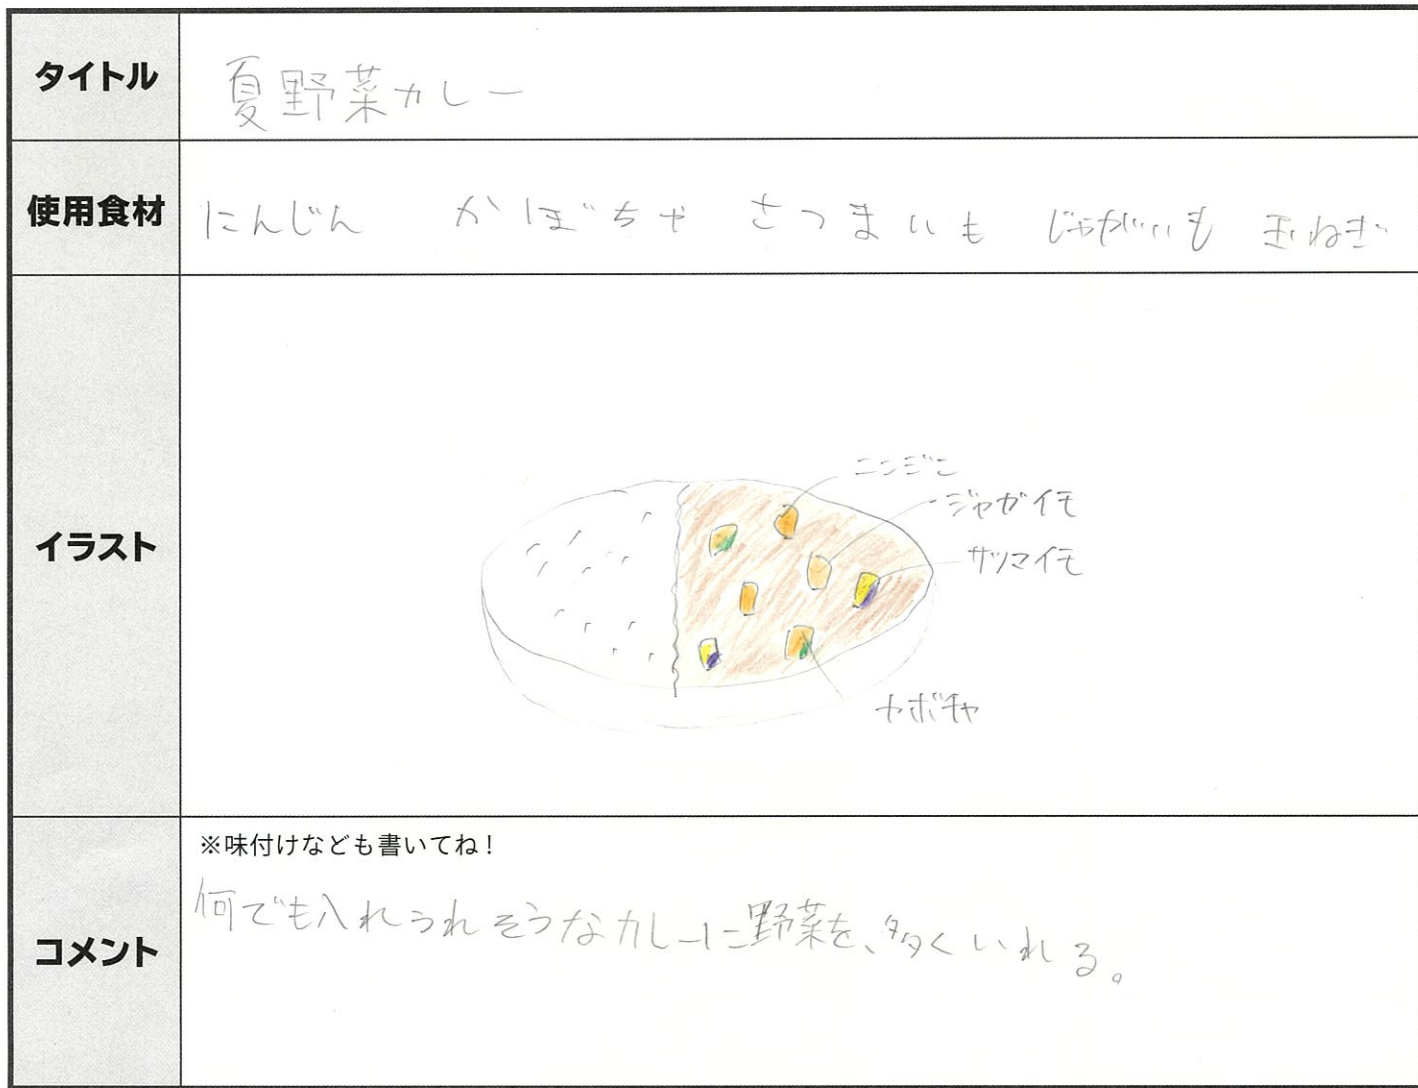 タイトル
夏野菜カレー
使用食材
にんじん かぼちゃ さつまいも じゃがいも
イラスト
ニンジン
ジャガイモ
サツマイモ
カボチャ
コメント
※味付けなども書いてね!
何でも入れられそうなカレーに野菜を、多くいれる。